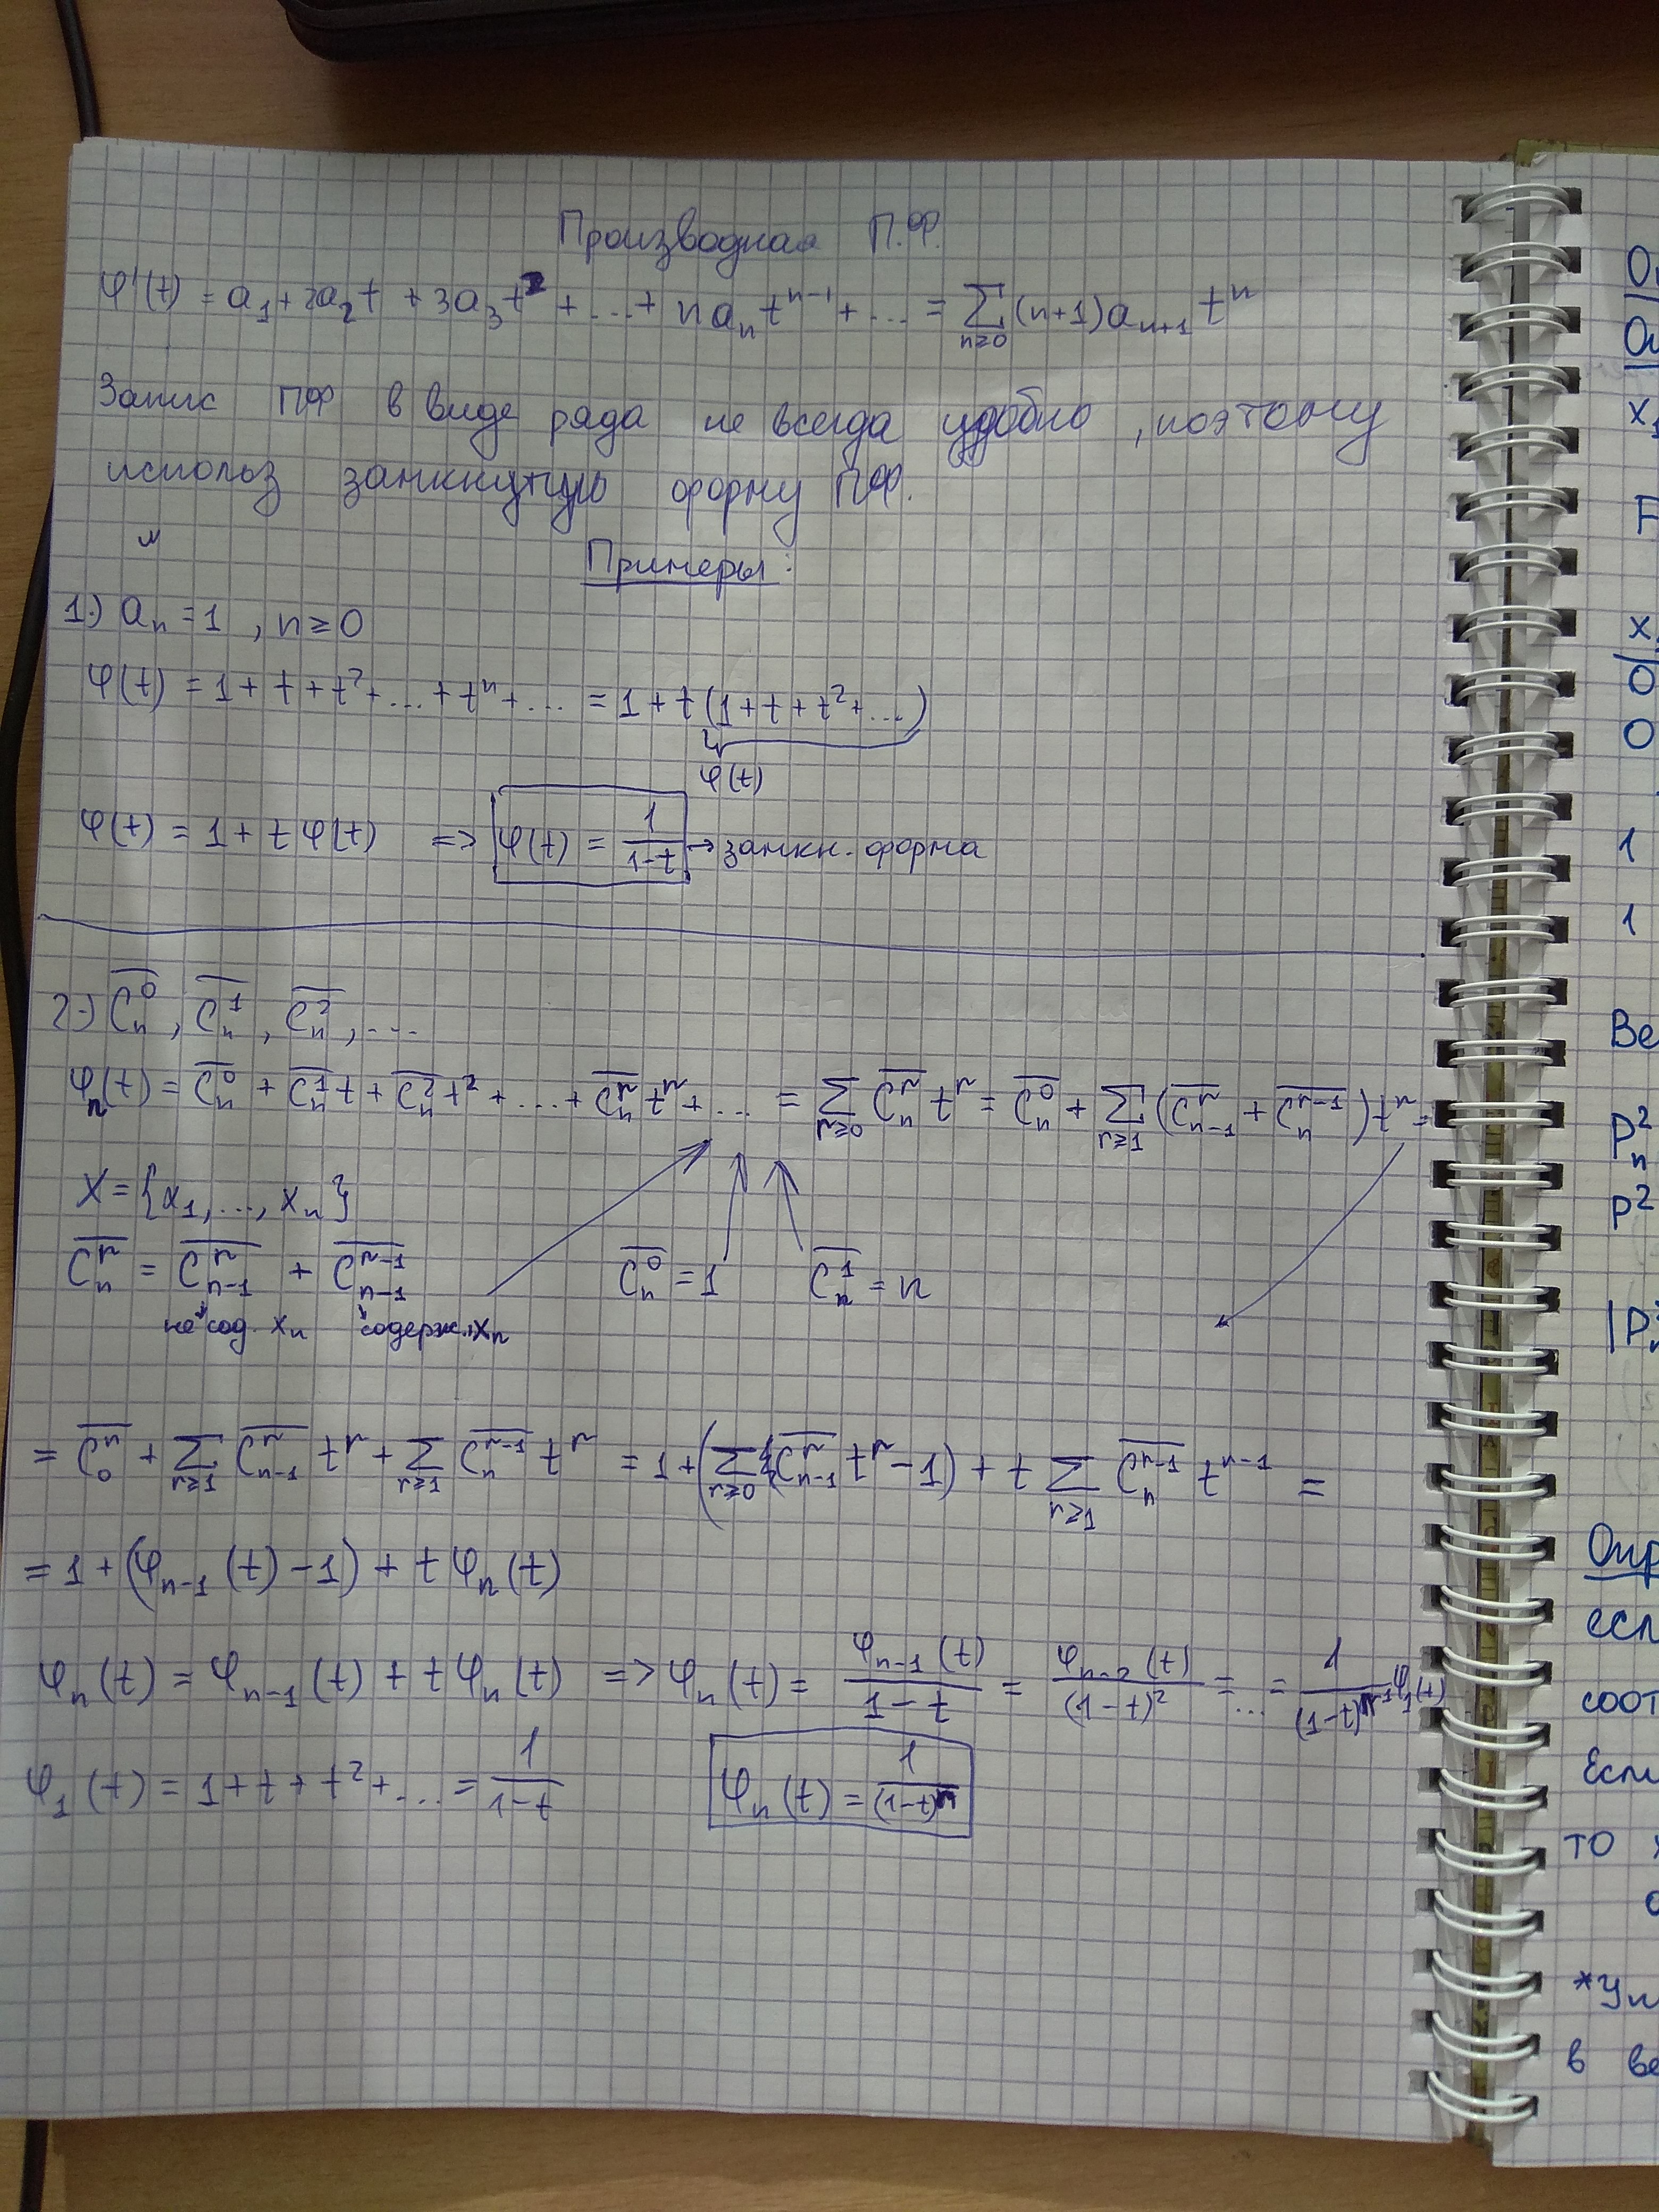 Производная П.Ф.
φ'(t) = a₁ + 2a₂t + 3a₃t² + ... + n aₙ tⁿ⁻¹ + ... = ∑_{n≥0} (n+1) aₙ₊₁ tⁿ
Запис ПФ в виде ряда не всегда удобно, поэтому
использ замкнутую форму ПФ.
Примеры:
1.) aₙ = 1, n ≥ 0
φ(t) = 1 + t + t² + ... + tⁿ + ... = 1 + t (1 + t + t² + ...)
φ(t)
φ(t) = 1 + t φ(t) => φ(t) = 1/(1-t) → замкн. форма
2.) C̅ₙ⁰, C̅ₙ¹, C̅ₙ², ...
φₙ(t) = C̅ₙ⁰ + C̅ₙ¹ t + C̅ₙ² t² + ... + C̅ₙʳ tʳ + ... = ∑_{r≥0} C̅ₙʳ tʳ = C̅ₙ⁰ + ∑_{r≥1} (C̅ₙ₋₁ʳ + C̅ₙʳ⁻¹) tʳ =
X = {x₁, ..., xₙ}
C̅ₙʳ = C̅ₙ₋₁ʳ + C̅ₙ₋₁ʳ⁻¹ C̅ₙ⁰ = 1 C̅ₙ¹ = n
не сод. xₙ содерж. xₙ
= C̅₀ⁿ + ∑_{r≥1} C̅ₙ₋₁ʳ tʳ + ∑_{r≥1} C̅ₙʳ⁻¹ tʳ = 1 + (∑_{r≥0} C̅ₙ₋₁ʳ tʳ - 1) + t ∑_{r≥1} C̅ₙʳ⁻¹ tʳ⁻¹ =
= 1 + (φₙ₋₁(t) - 1) + t φₙ(t)
φₙ(t) = φₙ₋₁(t) + t φₙ(t) => φₙ(t) = φₙ₋₁(t)/(1-t) = φₙ₋₂(t)/(1-t)² = ... = 1/(1-t)ⁿ⁻¹ φ₁(t)
φ₁(t) = 1 + t + t² + ... = 1/(1-t) φₙ(t) = 1/(1-t)ⁿ
x₁
0
0
1
1
Pₙ²
P²
есл
соот
Если
то
*Ум
в ве